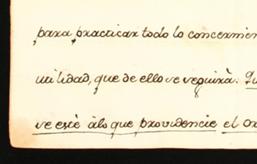 para practicar todo lo concernien
utilidad, que de ello se seguirà. Qu
se estè àlo que providencie el Or